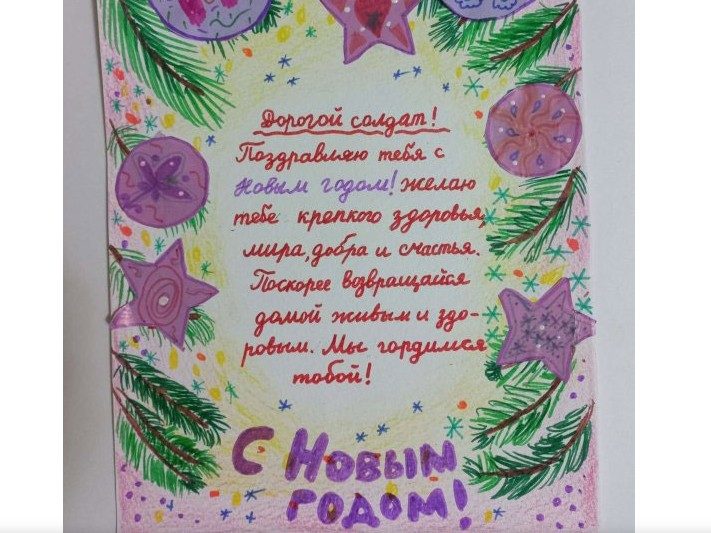 Дорогой солдат!
Поздравляю тебя с
Новым годом! желаю
тебе крепкого здоровья,
мира, добра и счастья.
Поскорее возвращайся
домой живым и здо-
ровым. Мы гордимся
тобой!
С Новым
годом!